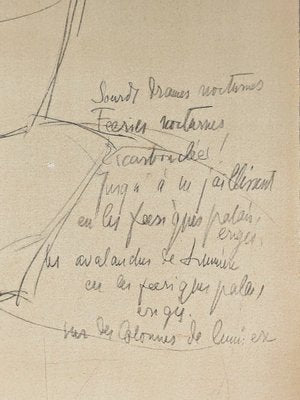 Sourds Drames nocturnes
Feeries nocturnes
Escarbouclées!
Jusqu'à n jaillissant
en les feeriques palais
erigés
les avalanches de lumière
en les feeriques palais
erigés
sur des Colonnes de lumière